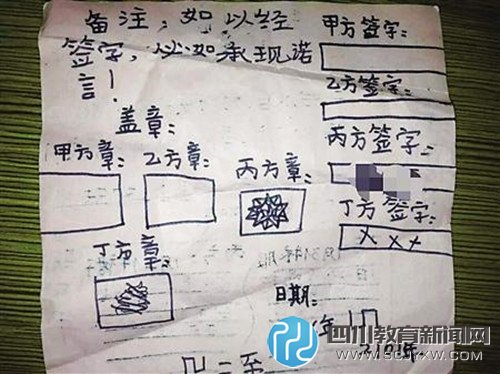 备注，如以经
签字，以如承现诺
言！
盖章：
甲方章：
乙方章：
丙方章：
丁方章：
甲方签字：
乙方签字：
丙方签字：
丁方签字：
x x x
日期：
年
二至
210年.
四川教育新闻网
WWW.SCJYXW.COM